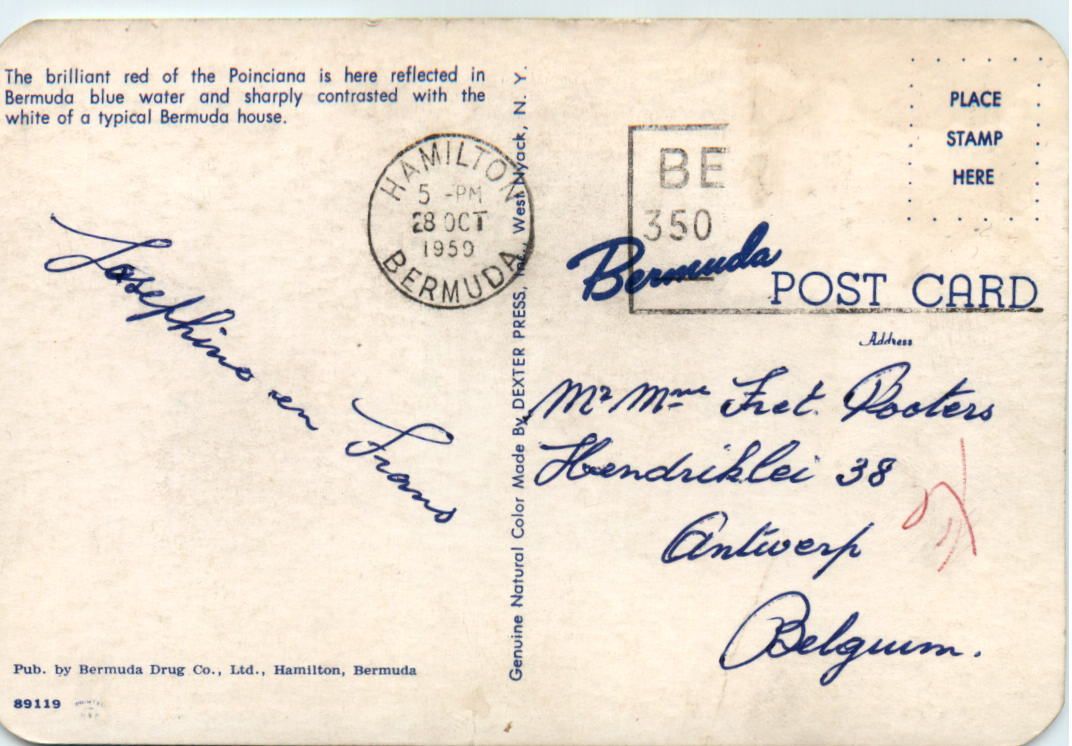 The brilliant red of the Poinciana is here reflected in
Bermuda blue water and sharply contrasted with the
white of a typical Bermuda house.
HAMILTON
5 -PM
28 OCT
1959
BERMUDA
BE
350
PLACE
STAMP
HERE
Bermuda POST CARD
Address
Josephine en Frans
Mr Mme Fret. Pooters
Hendriklei 38
Antwerp
Belgium.
Genuine Natural Color Made By DEXTER PRESS, Inc., West Nyack, N. Y.
Pub. by Bermuda Drug Co., Ltd., Hamilton, Bermuda
89119